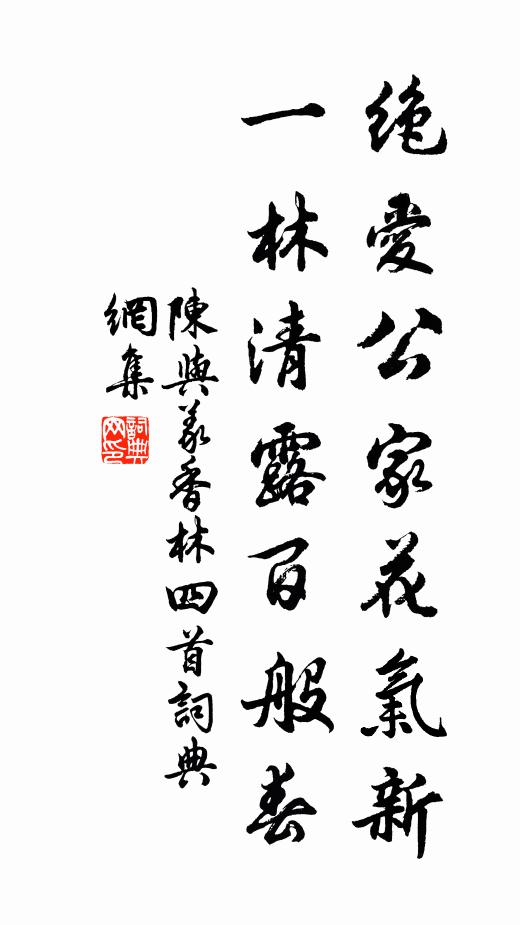 絶愛公家花氣新
一林清露百般春
陳與義香林四首詞典
網集
詞典網印